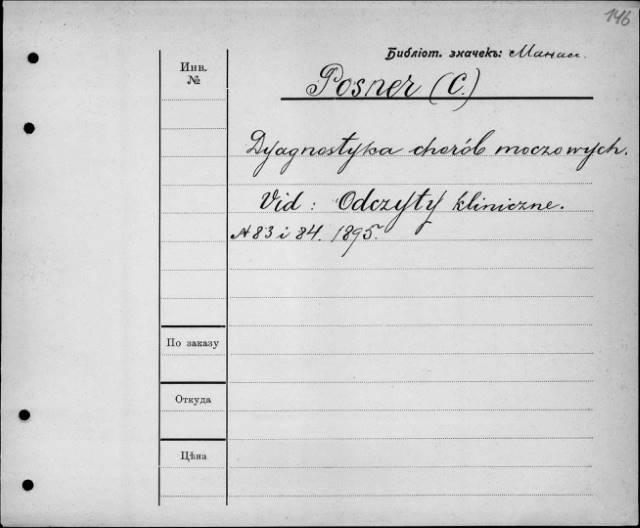 146
Библіот. значекъ: Манас.
Инв.
№
Posner (C.)
Dyagnostyka chorób moczowych.
Vid: Odczyty kliniczne.
№ 83 i 84. 1895.
По заказу
Откуда
Цѣна